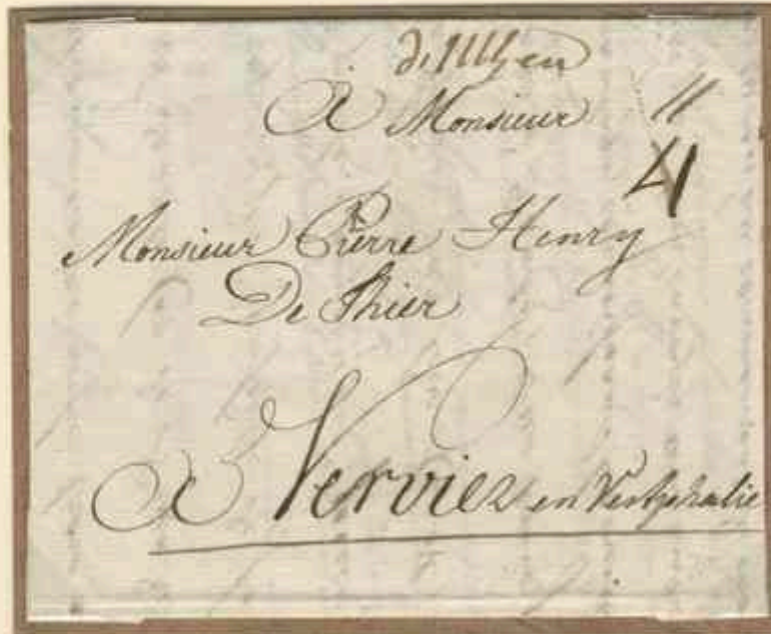 A Monsieur 11
4
Monsieur Pierre Henry
De Thier
A Verviez en Vestphalie